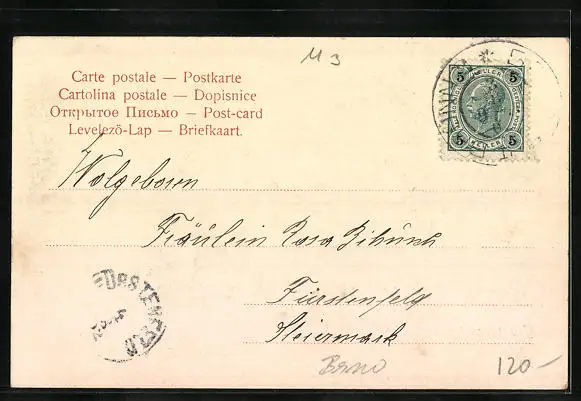 M 3
Carte postale — Postkarte
Cartolina postale — Dopisnice
Открытое Письмо — Post-card
Levelező-Lap — Briefkaart.
5 HELLER 5
5 HELLER 5
Wolgeboren
Fräulein Rosa
Fürstenfeld
Steiermark
FÜRSTENFELD
Brno
120.-